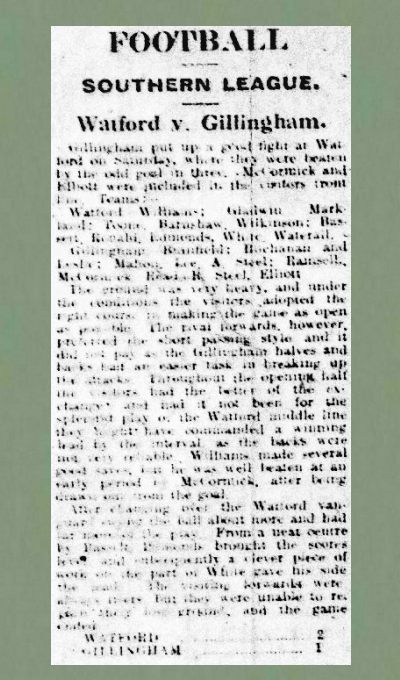 FOOTBALL
SOUTHERN LEAGUE.
Watford v. Gillingham.
Gillingham put up a good fight at Wat-
ford on Saturday, where they were beaten
by the odd goal in three. McCormick and
Elliott were included in the visitors front
line. Teams:—
Watford Williams; Gladwin Mark-
land; Toone, Barnshaw, Wilkinson; Bas-
sett, Ronald, Edmonds, White, Waterall.
Gillingham Branfield; Buchanan and
Leslie; Mahon, Lee, A. Steel; Ramsell,
McCormick, R. Steel, Elliott
The ground was very heavy, and under
the conditions the visitors adopted the
right course in making the game as open
as possible. The rival forwards, however,
preferred the short passing style and it
did not pay as the Gillingham halves and
backs had an easier task in breaking up
the attacks. Throughout the opening half
the visitors had the better of the ex-
changes and had it not been for the
splendid play of the Watford middle line
they might have commanded a winning
lead by the interval, as the backs were
not very reliable. Williams made several
good saves, but he was well beaten at an
early period by McCormick, after being
drawn out from the goal.
After changing over the Watford van-
guard swung the ball about more and had
far more of the play. From a neat centre
by Bassett, Edmonds brought the scores
level and subsequently a clever piece of
work on the part of White gave his side
the lead. The visiting forwards were
always triers, but they were unable to re-
gain their lost ground, and the game
ended
WATFORD 2
GILLINGHAM 1